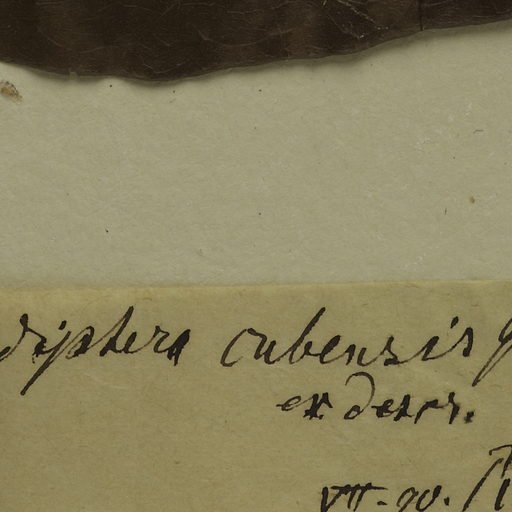 diptera cubensis
ex descr.
VII-90.